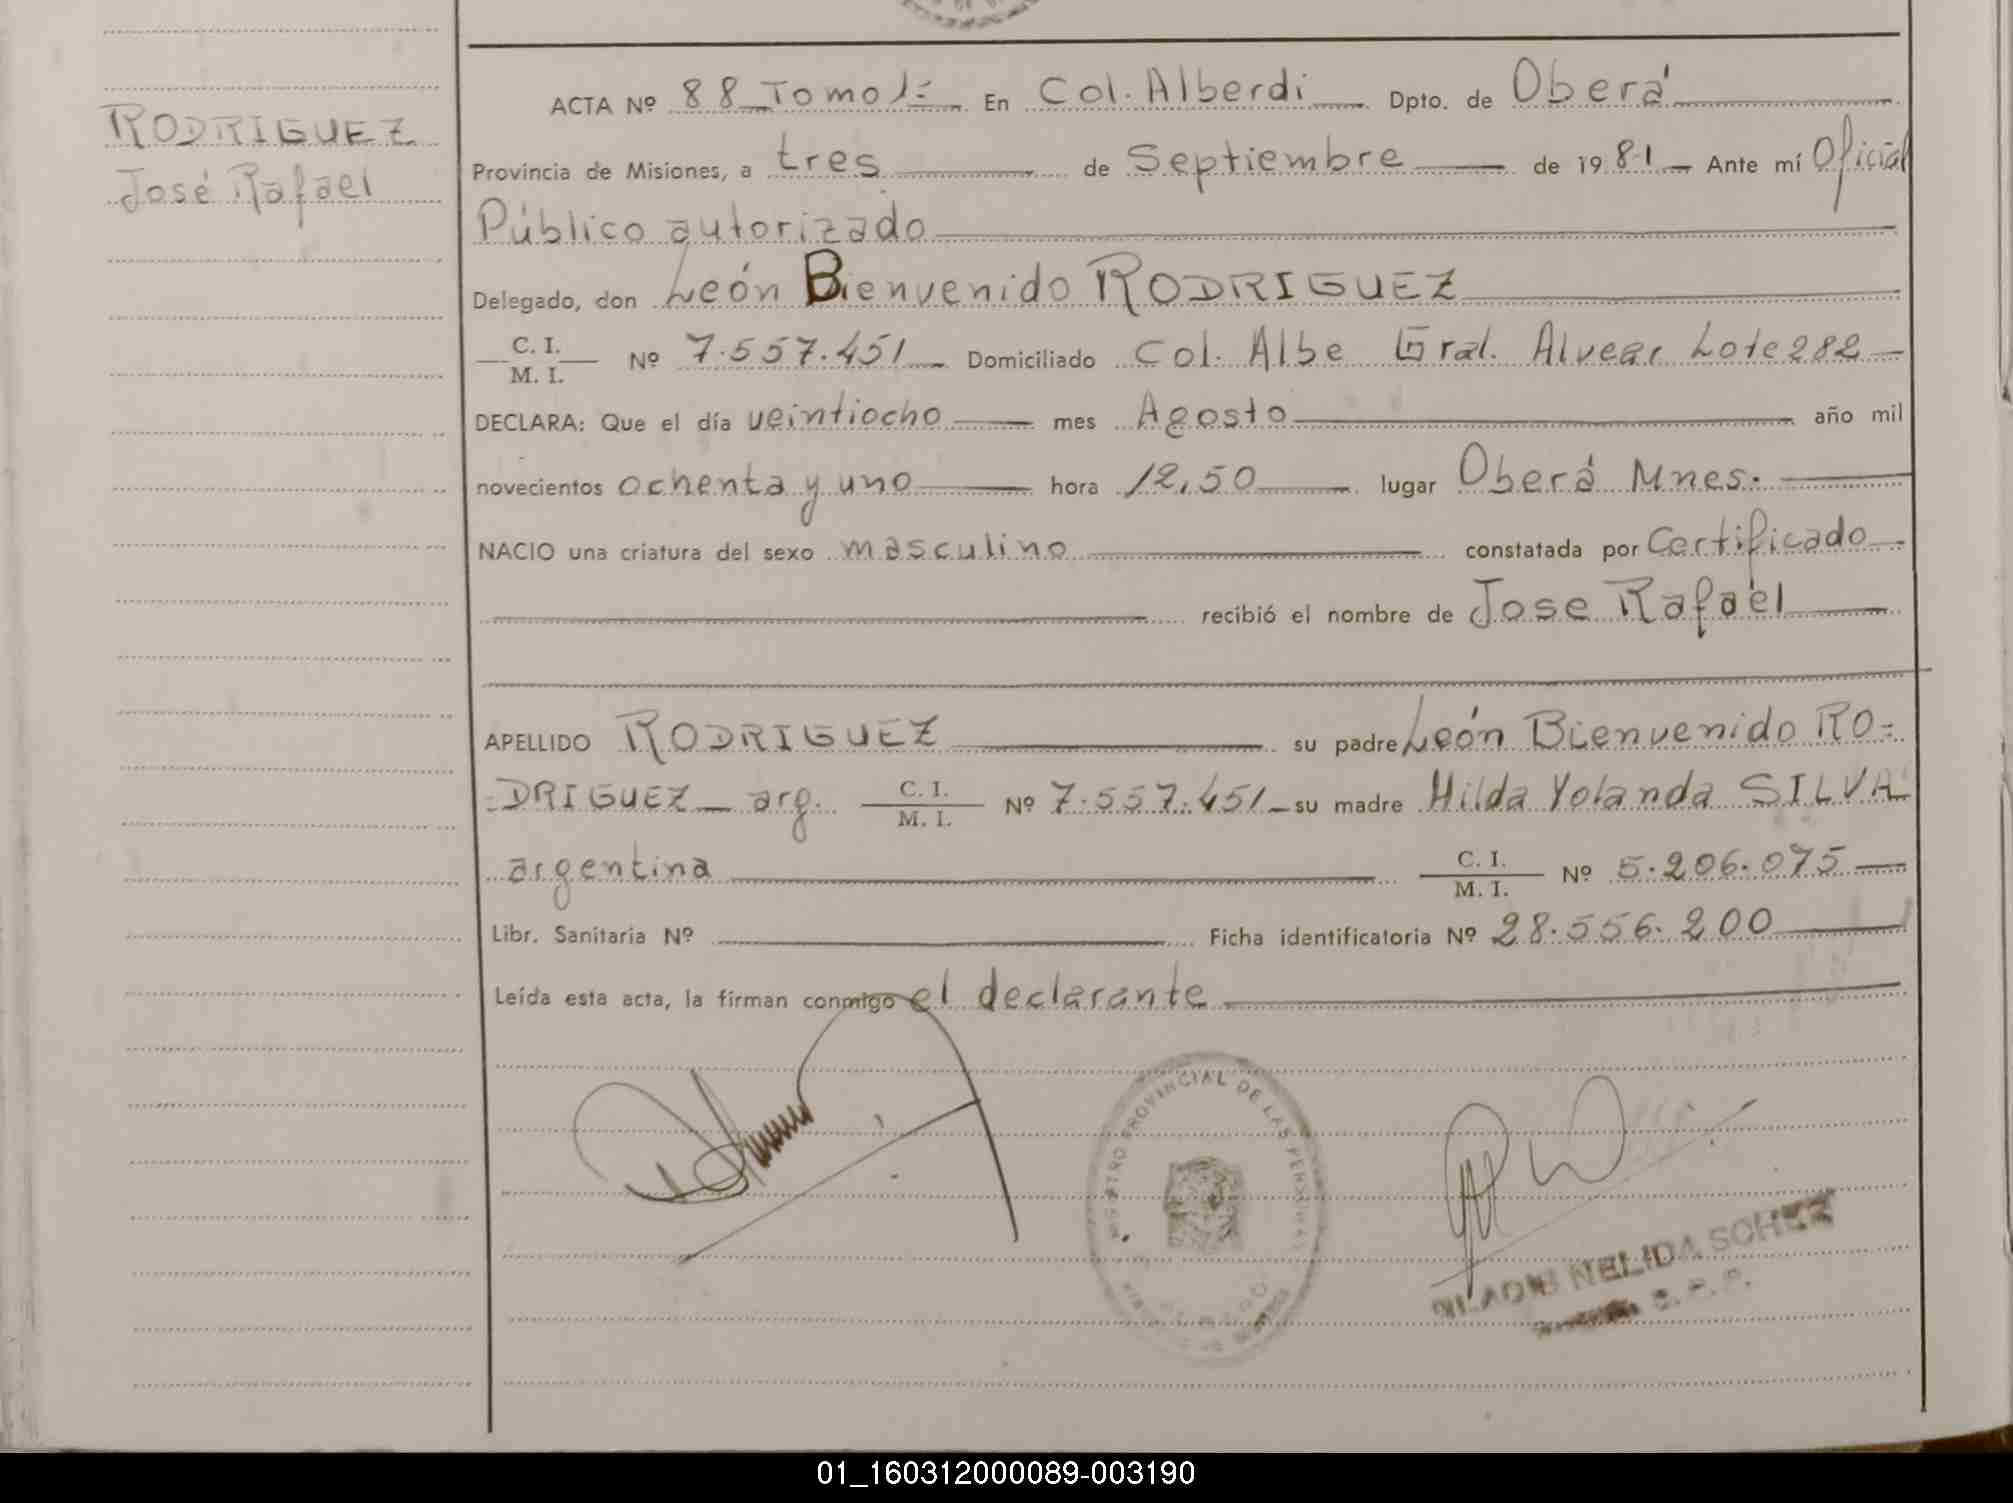 RODRIGUEZ
José Rafael
ACTA Nº 88 Tomo 1º En Col. Alberdi Dpto. de Oberá
Provincia de Misiones, a tres de Septiembre de 1981 Ante mí Oficial
Público autorizado
Delegado, don León Bienvenido RODRIGUEZ
C. I. / M. I. Nº 7.557.451 Domiciliado Col. Albe Gral. Alvear Lote 282
DECLARA: Que el día veintiocho mes Agosto año mil
novecientos ochenta y uno hora 12,50 lugar Oberá Mnes.
NACIO una criatura del sexo masculino constatada por Certificado
recibió el nombre de Jose Rafael
APELLIDO RODRIGUEZ su padre León Bienvenido RO=
=DRIGUEZ arg. C. I. / M. I. Nº 7.557.451 su madre Hilda Yolanda SILVA
argentina C. I. / M. I. Nº 5.206.075
Libr. Sanitaria Nº Ficha identificatoria Nº 28.556.200
Leída esta acta, la firman conmigo el declarante
REGISTRO PROVINCIAL DE LAS PERSONAS
NELIDA
01_160312000089-003190